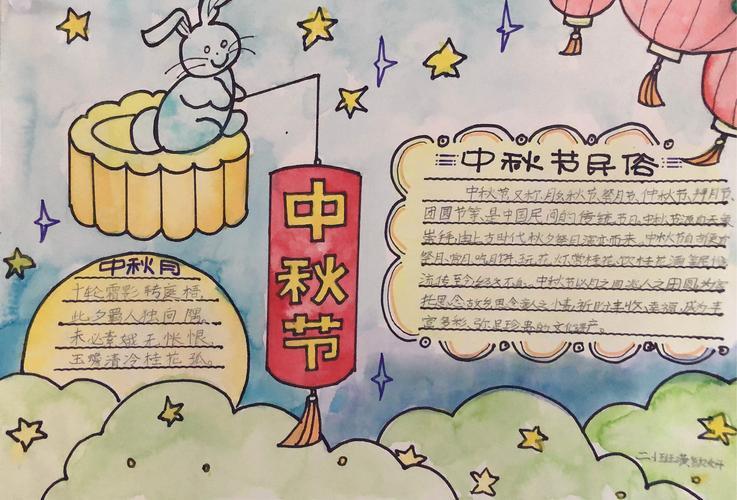 中秋节
中秋月
十轮霜影转庭梧,
此夕羁人独向隅。
未必素娥无怅恨,
玉蟾清冷桂花孤。
中秋节民俗
中秋节,又称月夕、秋节、祭月节、仲秋节、拜月节、
团圆节等,是中国民间的传统节日。中秋节源自天象
崇拜,由上古时代秋夕祭月演变而来。中秋节自古便有
祭月、赏月、吃月饼、玩花灯、赏桂花、饮桂花酒等民俗
流传至今,经久不息。中秋节以月之圆兆人之团圆,为寄
托思念故乡,思念亲人之情,祈盼丰收、幸福,成为丰
富多彩、弥足珍贵的文化遗产。
二